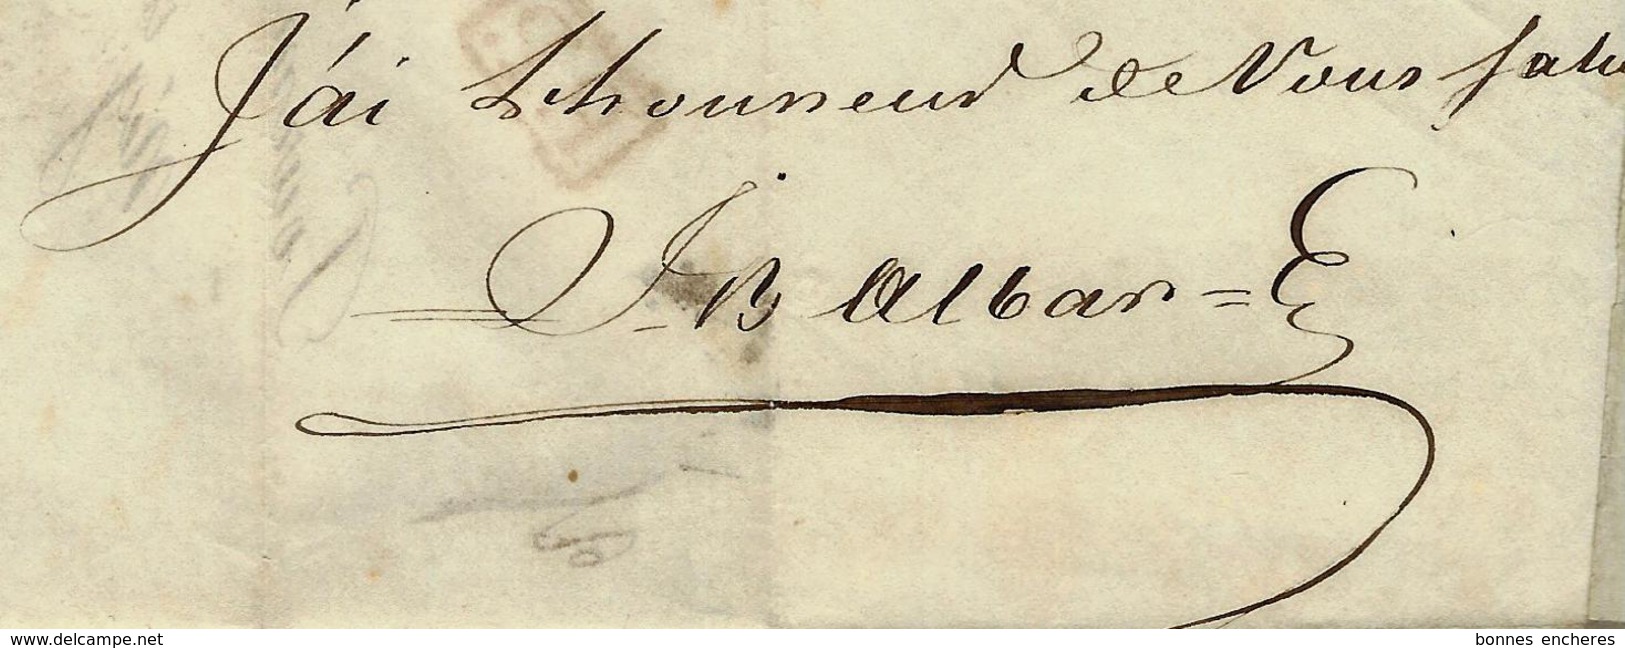 J'ai L'honneur de Vous salu
J-B Albar = E
www.delcampe.net
bonnes encheres